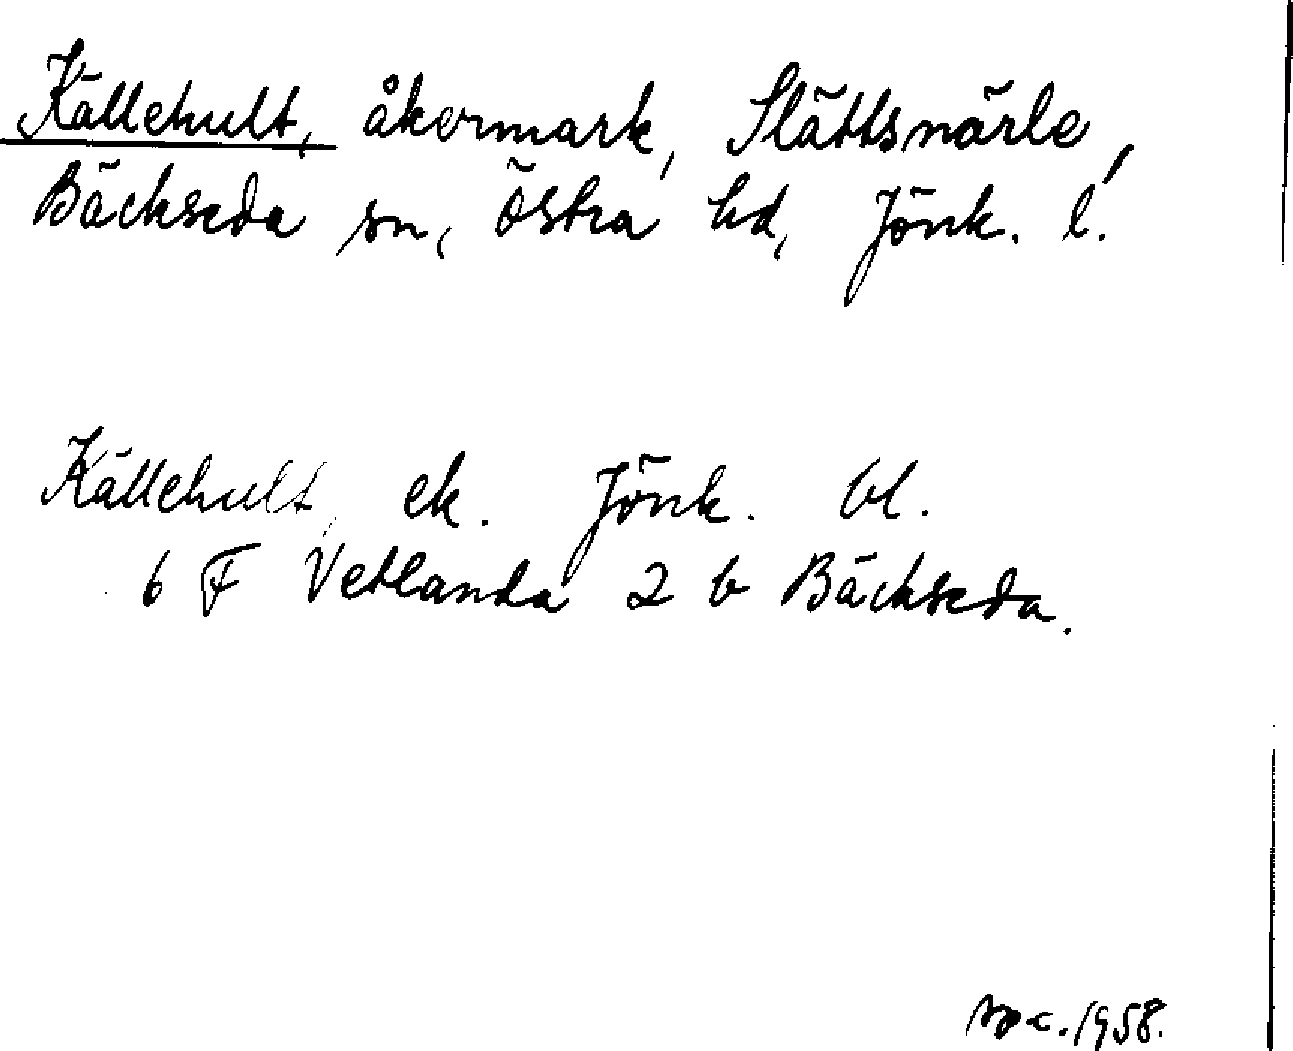 Källehult, åkermark, Slättsnärle,
Bäckseda sn, Östra hd, Jönk. l.
Källehult, ek. Jönk. bl.
6 F Vetlanda 2 b Bäckseda.
1958.